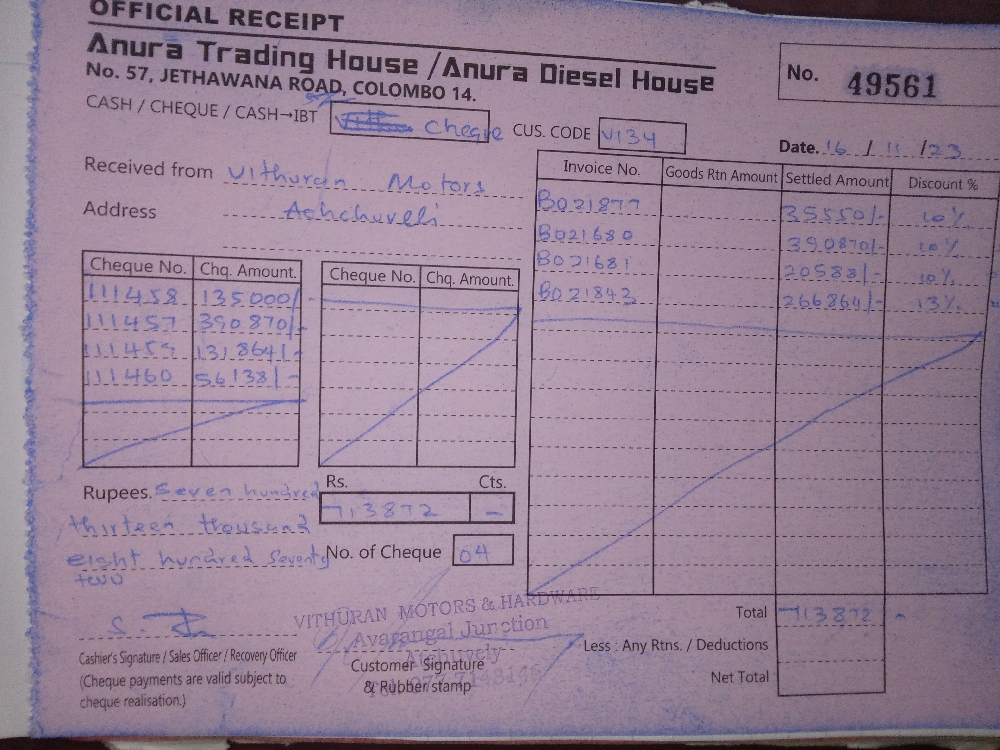 OFFICIAL RECEIPT
Anura Trading House /Anura Diesel House
No. 57, JETHAWANA ROAD, COLOMBO 14.
No. 49561
CASH / CHEQUE / CASH→IBT cheque CUS. CODE V134
Date. 16 / 11 /23
Received from Vithuran Motors
Address Achchuveli
Invoice No. Goods Rtn Amount Settled Amount Discount %
B021877 35550/- 10%
B021680 390870/- 10%
B021681 20588/- 10%
B021843 266864/- 13%
Cheque No. Chq. Amount. Cheque No. Chq. Amount.
111458 135000/-
111457 390870/-
111459 131864/-
111460 56138/-
Rupees. Seven hundred
thirteen thousand
eight hundred seventy
two
Rs. Cts.
713872 -
No. of Cheque 04
VITHURAN MOTORS & HARDWARE
Avarangal Junction
Total 713872 -
Less : Any Rtns. / Deductions
Net Total
Cashier's Signature / Sales Officer / Recovery Officer
(Cheque payments are valid subject to
cheque realisation.)
Customer Signature
& Rubber stamp